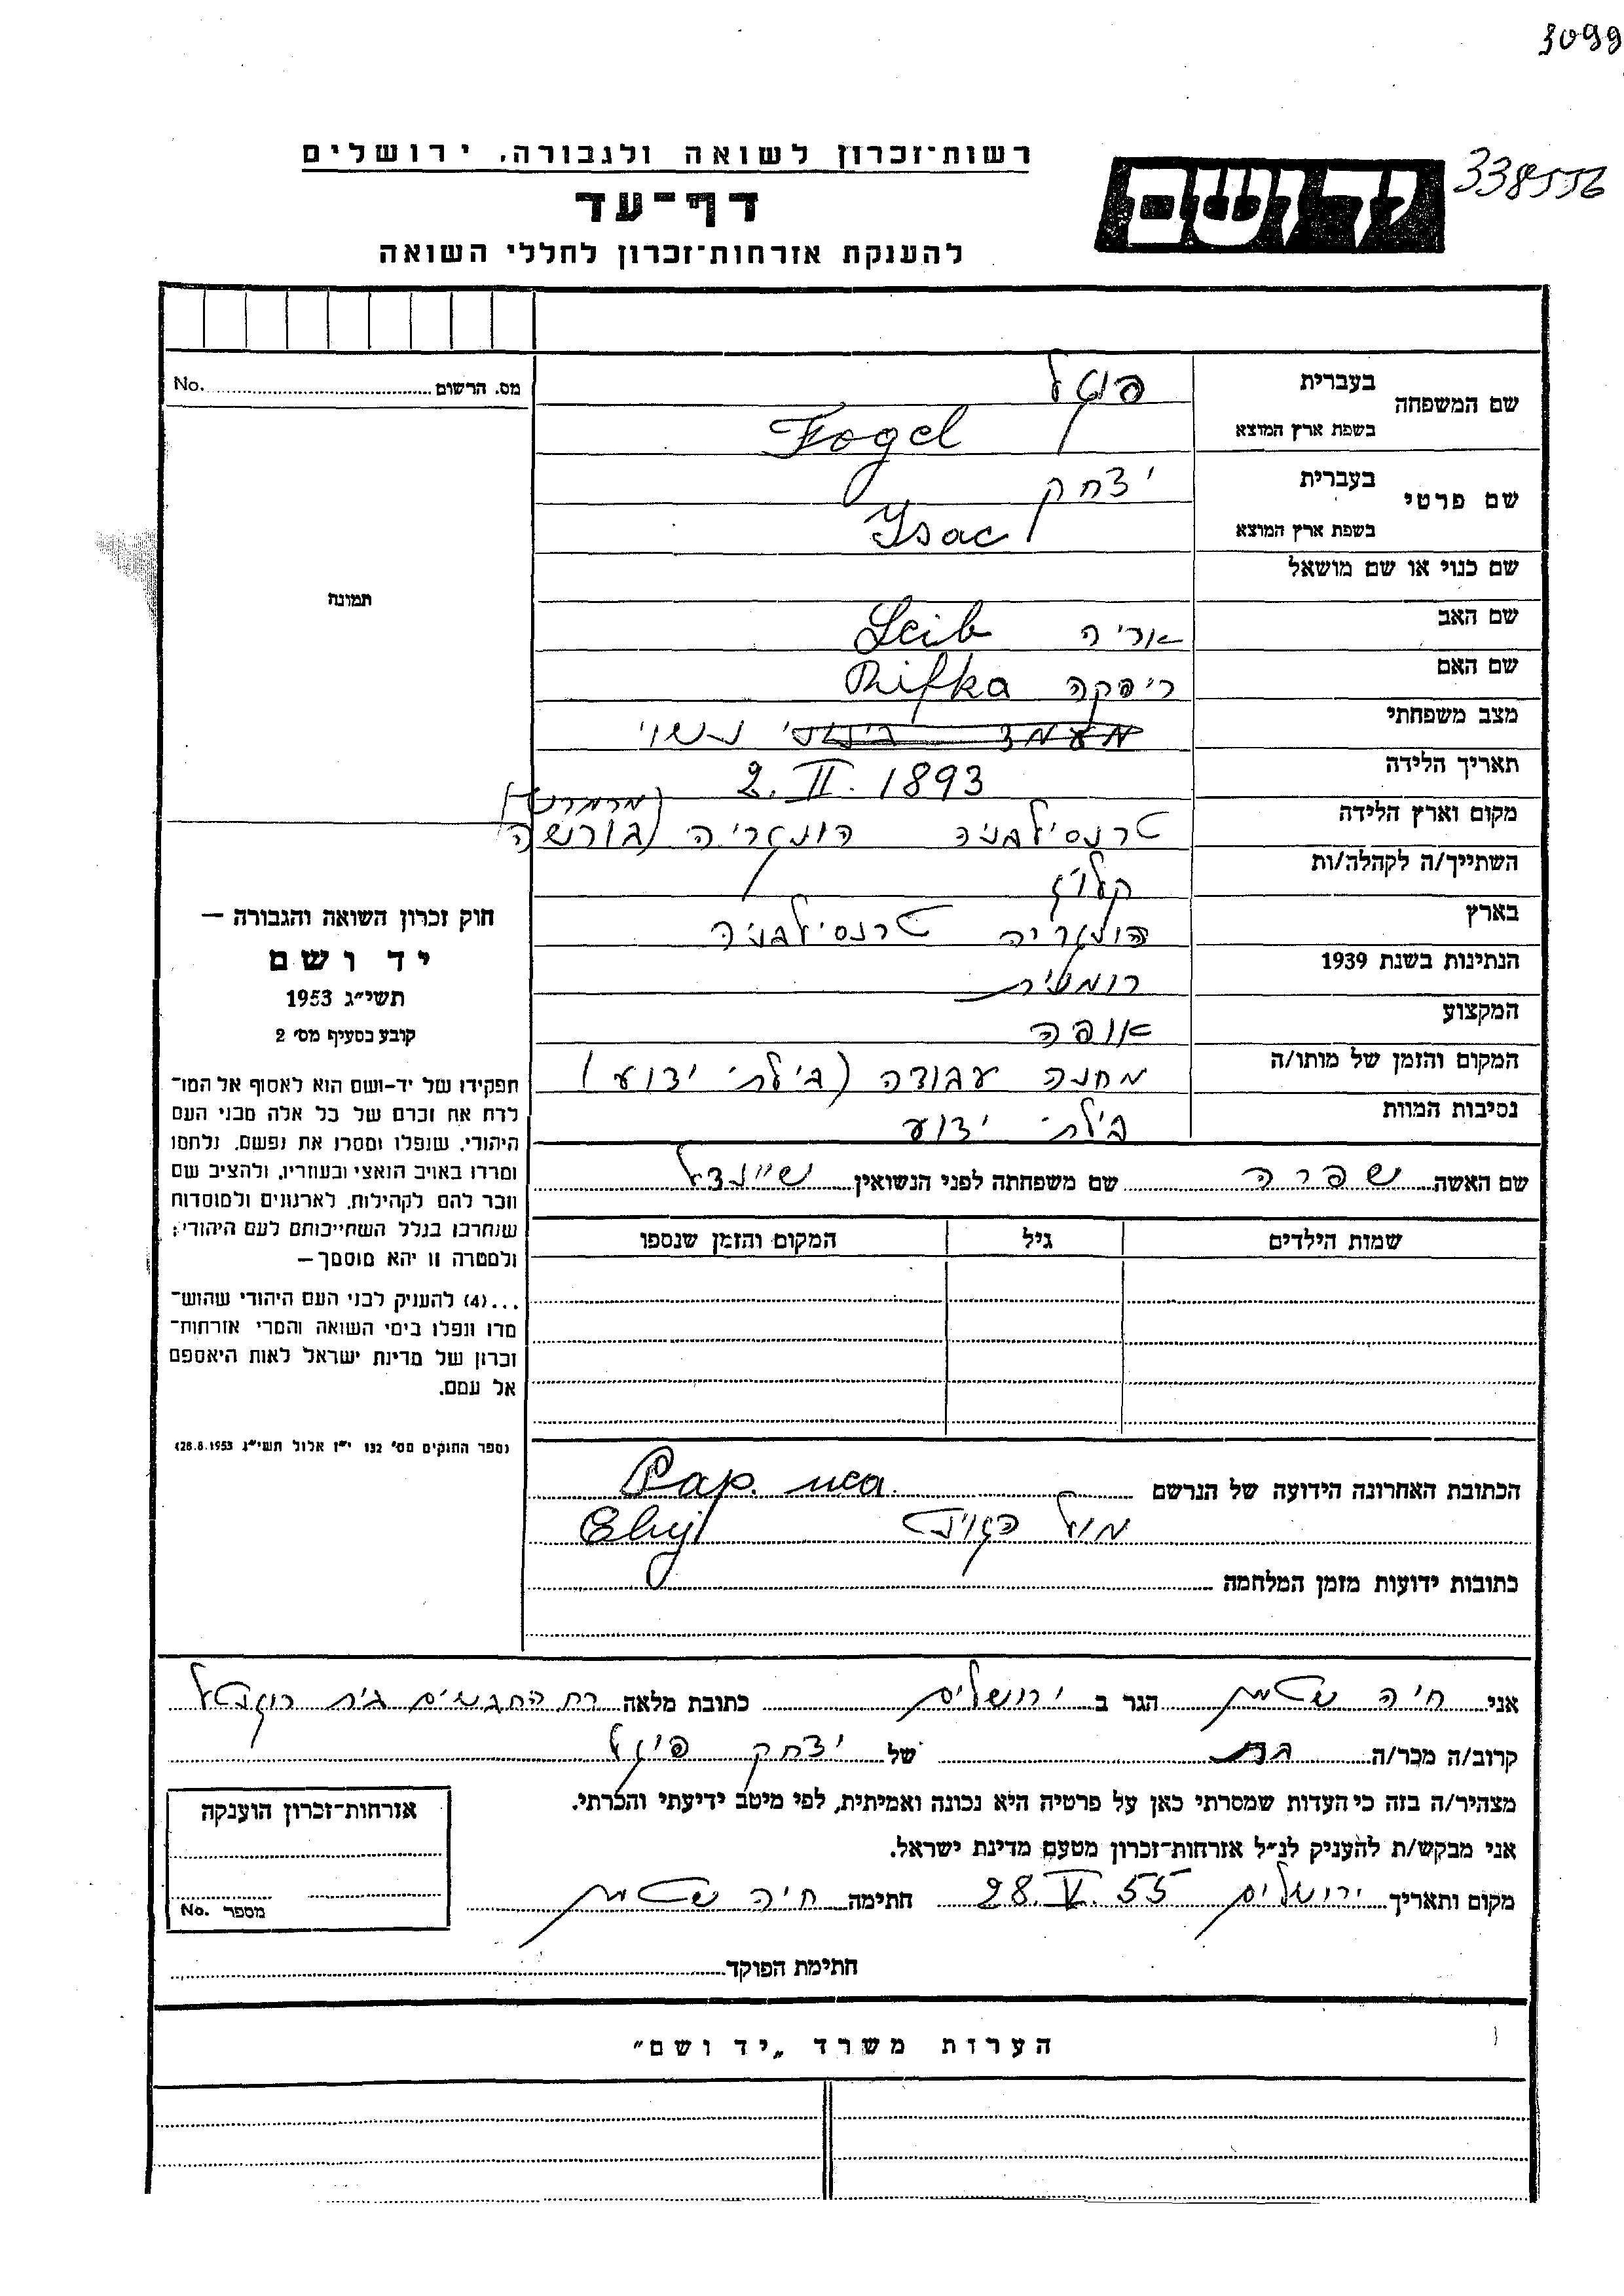 3099
338556
יד ושם
רשות־זכרון לשואה ולגבורה, ירושלים
דף־עד
להענקת אזרחות־זכרון לחללי השואה
מס. הרשום No.
שם המשפחה בעברית פוגל
בשפת ארץ המוצא Fogel
שם פרטי בעברית יצחק
בשפת ארץ המוצא Ysac
שם כנוי או שם מושאל
שם האב אריה Leib
שם האם ריפקה Rifka
מצב משפחתי נשוי
תאריך הלידה 2. II. 1893
מקום וארץ הלידה טרנסילבניה הונגריה (בורשה
השתייך/ה לקהלה/ות קלוז'
בארץ הונגריה טרנסילבניה
הנתינות בשנת 1939 רומנית
המקצוע אופה
המקום והזמן של מותו/ה מחנה עבודה (בילתי ידוע)
נסיבות המוות בילתי ידוע
תמונה
חוק זכרון השואה והגבורה —
יד ושם
תשי״ג 1953
קובע בסעיף מס׳ 2
תפקידו של יד־ושם הוא לאסוף אל המו־
לדת את זכרם של כל אלה מבני העם
היהודי, שנפלו ומסרו את נפשם, נלחמו
ומרדו באויב הנאצי ובעוזריו, ולהציב שם
וזכר להם לקהילות, לארגונים ולמוסדות
שנחרבו בגלל השתייכותם לעם היהודי;
ולמטרה זו יהא מוסמך—
...(4) להעניק לבני העם היהודי שהוש־
מדו ונפלו בימי השואה והמרי אזרחות־
זכרון של מדינת ישראל לאות היאספם
אל עמם.
(ספר החוקים מס׳ 132 י״ז אלול תשי״ג 28.8.1953)
שם האשה שפרה שם משפחתה לפני הנשואין שיינדל
שמות הילדים גיל המקום והזמן שנספו
הכתובת האחרונה הידועה של הנרשם Pap. uca
מול Cluj
כתובות ידועות מזמן המלחמה
אני חיה הגר ב ירושלים כתובת מלאה רח החבשים בית
קרוב/ה מכר/ה בת של יצחק פוגל
מצהיר/ה בזה כי העדות שמסרתי כאן על פרטיה היא נכונה ואמיתית, לפי מיטב ידיעתי והכרתי.
אני מבקש/ת להעניק לנ״ל אזרחות־זכרון מטעם מדינת ישראל.
מקום ותאריך ירושלים 28. V. 55 חתימה חיה
אזרחות־זכרון הוענקה
מספר No.
חתימת הפוקד
הערות משרד „יד ושם״